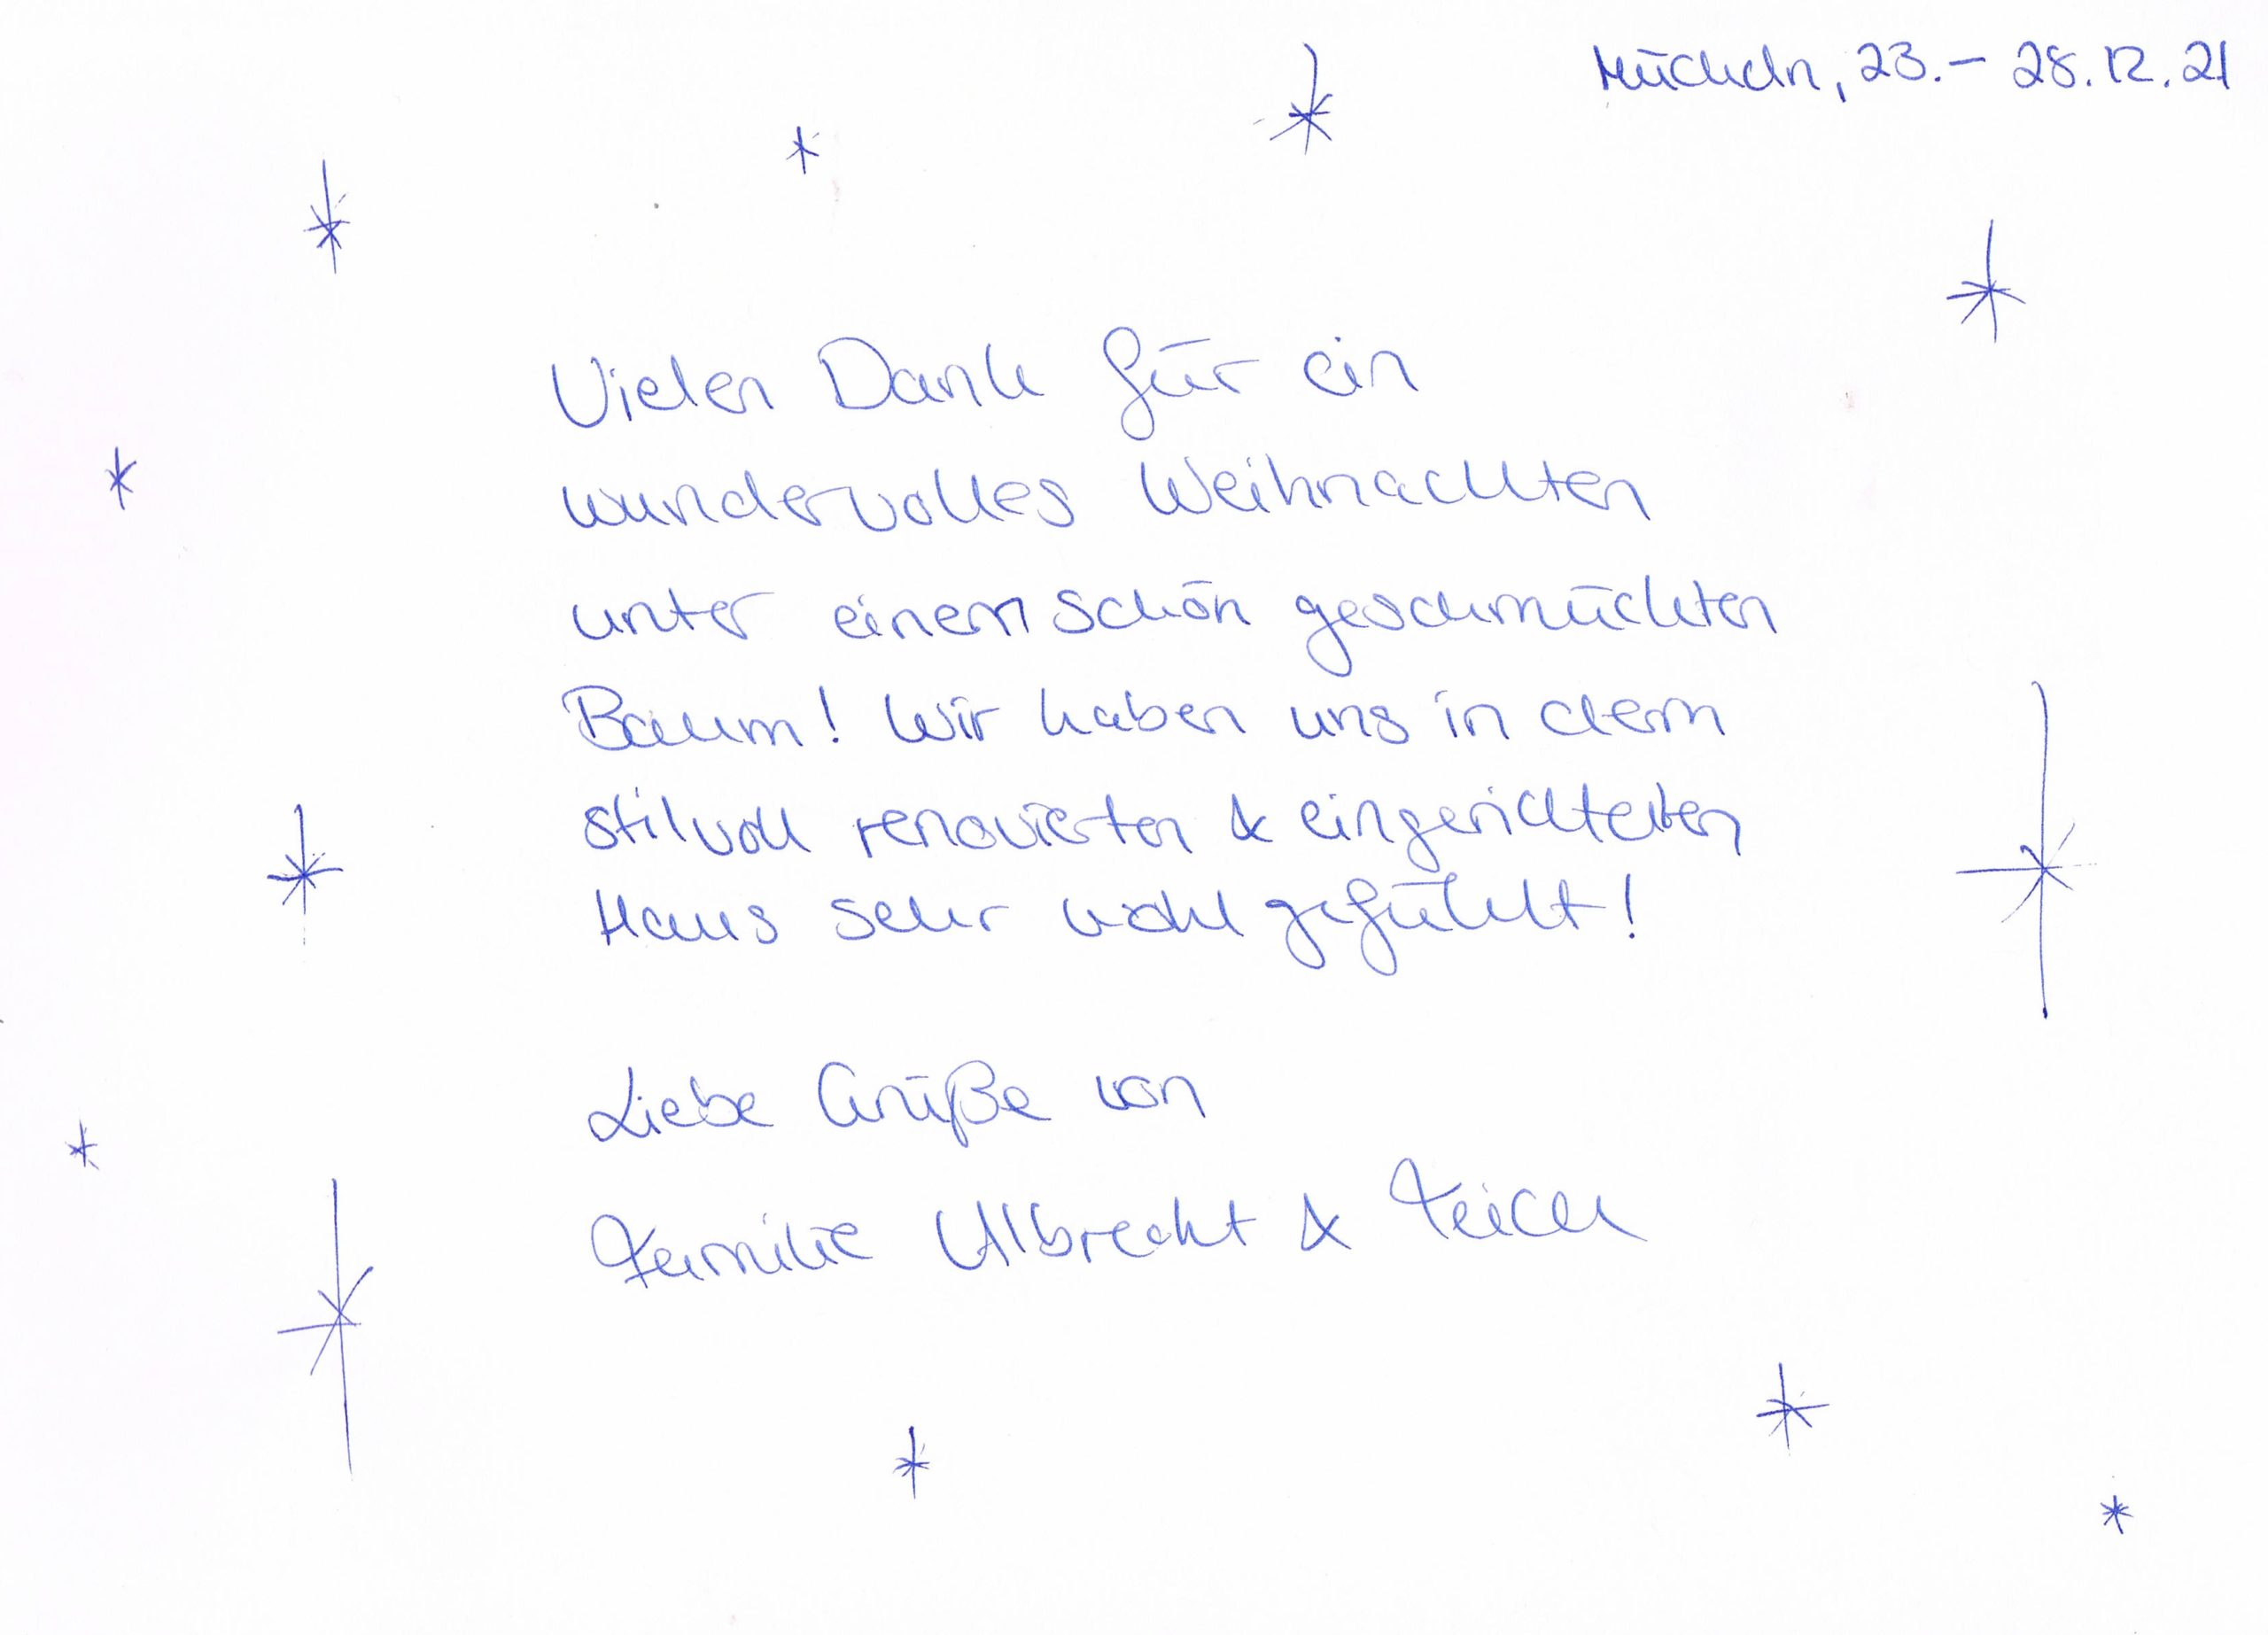 Mücheln, 23. - 28.12.21
Vielen Dank für ein
wundervolles Weihnachten
unter einem schön geschmückten
Baum! Wir haben uns in dem
stilvoll renovierten & eingerichteten
Haus sehr wohl gefühlt!
Liebe Grüße von
Familie Ulbrecht & Teich